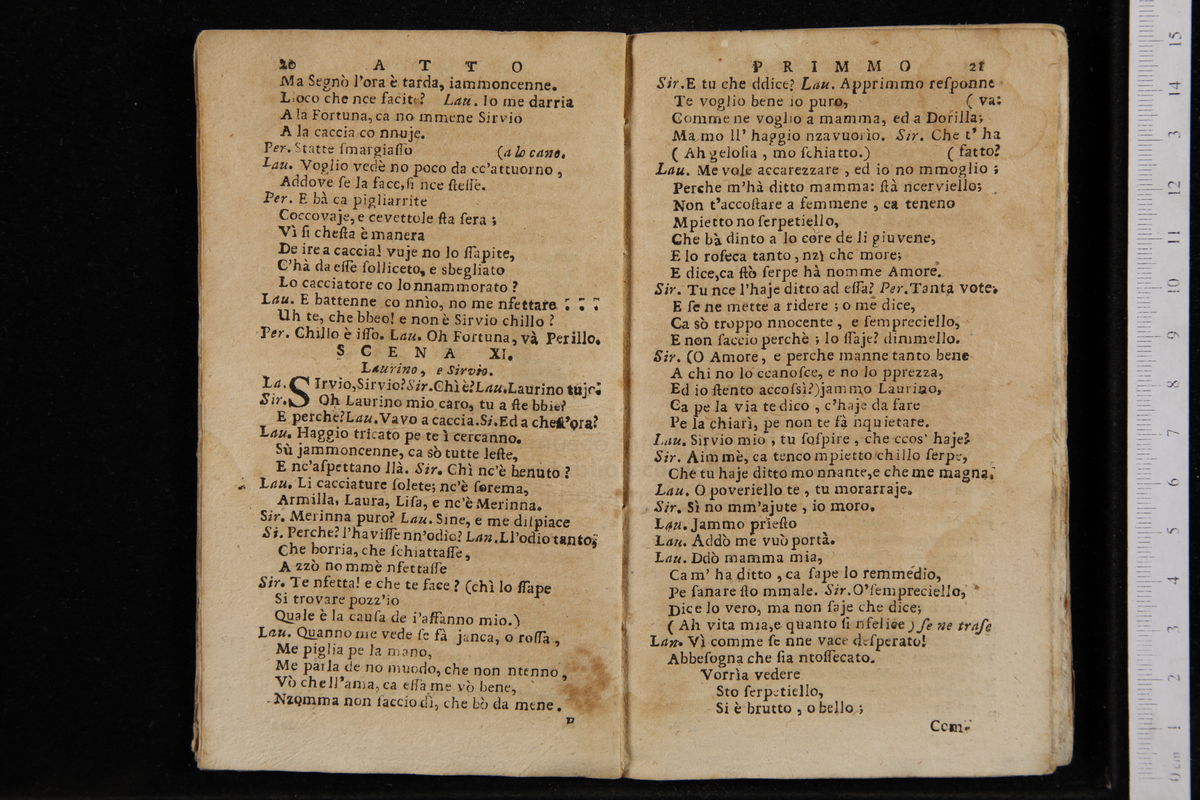 20 A T T O
Ma Segnò l'ora è tarda, iammoncenne.
Lloco che nce facite? Lau. Io me darria
A la Fortuna, ca no mmene Sirvio
A la caccia co nnuje.
Per. Statte ſmargiaſſo (a lo cane.
Lau. Voglio vedè no poco da cc'attuorno,
Addove ſe la face, ſi nce ſteſſe.
Per. E bà ca pigliarrite
Coccovaje, e cevettole ſta ſera;
Vì ſi cheſta è manera
De ire a caccia! vuje no lo ſſapite,
C'hà da eſſè ſolliceto, e sbegliato
Lo cacciatore co lo nnammorato?
Lau. E battenne co nnìo, no me nfettare
Uh te, che bbeo! e non è Sirvio chillo?
Per. Chillo è iſſo. Lau. Oh Fortuna, và Perillo.
S C E N A XI.
Laurino, e Sirvio.
La. SIrvio, Sirvio? Sir. Chì è? Lau. Laurino tujo.
Sir. Oh Laurino mio caro, tu a ſte bbie?
E perchè? Lau. Vavo a caccia. Si. Ed a cheſt'ora?
Lau. Haggio tricato pe te ì cercanno.
Sù jammoncenne, ca sò tutte leſte,
E nc'aſpettano llà. Sir. Chì nc'è benuto?
Lau. Li cacciature ſolete; nc'è ſorema,
Armilla, Laura, Liſa, e nc'è Merinna.
Sir. Merinna puro? Lau. Sine, e me diſpiace
Si. Perche? l'haviſſe nn'odio? Lan. Ll'odio tanto,
Che borria, che ſchiattaſſe,
A zzò no mmè nfettaſſe
Sir. Te nfetta! e che te face? (chì lo ſſape
Si trovare pozz'io
Quale è la cauſa de l'affanno mio.)
Lau. Quanno me vede ſe fà janca, o roſſa,
Me piglia pe la mano,
Me parla de no muodo, che non ntenno,
Vò chell'ama, ca eſſa me vò bene,
Nzomma non ſaccio dì, che bò da mene.
P R I M M O 21
Sir. E tu che ddice? Lau. Apprimmo reſponne
Te voglio bene io puro, (va:
Comme ne voglio a mamma, ed a Dorilla;
Ma mo ll' haggio nzavuorio. Sir. Che t' ha
( Ah geloſia, mo ſchiatto.) ( fatto?
Lau. Me vole accarezzare, ed io no mmoglio;
Perche m'hà ditto mamma: ſtà ncerviello;
Non t'accoſtare a femmene, ca teneno
Mpietto no ſerpetiello,
Che bà dinto a lo core de li giuvene,
E lo roſeca tanto, nzì che more;
E dice, ca ſtò ſerpe hà nomme Amore.
Sir. Tu nce l'haje ditto ad eſſa? Per. Tanta vote,
E ſe ne mette a ridere; o me dice,
Ca sò troppo nnocente, e ſempreciello,
E non ſaccio perchè; lo ſſaje? dimmello.
Sir. (O Amore, e perche manne tanto bene
A chi no lo ccanoſce, e no lo pprezza,
Ed io ſtento accoſsì?) jammo Laurino,
Ca pe la via te dico, c'haje da fare
Pe la chiarì, pe non te fà nquietare.
Lau. Sirvio mio, tu ſoſpire, che ccos' haje?
Sir. Aimmè, ca tenco mpietto chillo ſerpe,
Che tu haje ditto mo nnante, e che me magna.
Lau. O poveriello te, tu morarraje.
Sir. Sì no mm'ajute, io moro.
Lau. Jammo prieſto
Lau. Addò me vuò portà.
Lau. Ddò mamma mia,
Ca m' ha ditto, ca ſape lo remmedio,
Pe ſanare ſto mmale. Sir. O'ſempreciello,
Dice lo vero, ma non ſaje che dice;
( Ah vita mia, e quanto ſi nfelice) ſe ne traſe
Lan. Vì comme ſe nne vace deſperato!
Abbeſogna che ſia ntoſſecato.
Vorrìa vedere
Sto ſerpetiello,
Si è brutto, o bello;
Com-